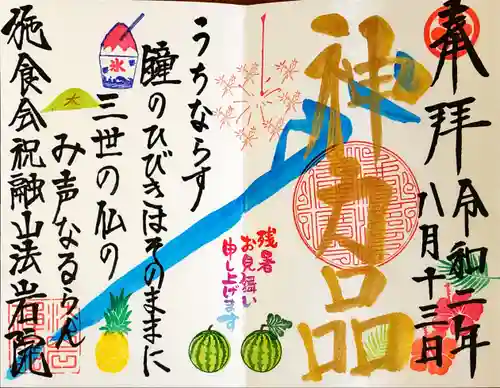 奉拝
令和二年
八月十三日
神力品
残暑
お見舞い
申し上げます
うちならす
鐘のひびきはそのままに
三世の仏の
み声なるらん
氷
大
施食会祝融山法岩院